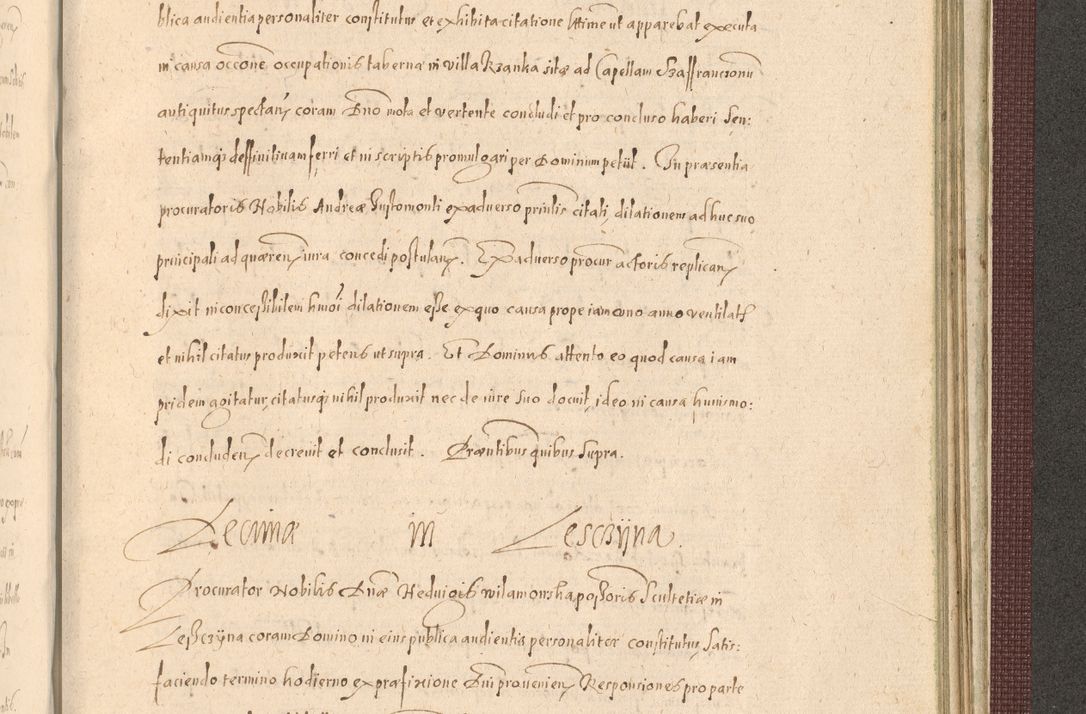 blica audientia personaliter constitutus et exhibita citatione Ittime ut apparebat executa
in causa occōne occupationis tabernæ in villa Rzanka sitæ ad Capellam Szaffranconū
antiquitus spectan̄ coram Dno mota et vertente concludi et pro concluso haberi Sen:
tentiamq; deffinitiuam ferri et in scriptis promulgari per Dominum petiit. In præsentia
procuratoris Nobilis Andreæ Gustomonti ex aduerso prinlis citati, dilationem ad huc suo
principali ad quæren̄ iura concedi postulan̄. Ex aduerso procur actoris replican̄
dixit inconcessibilem hmōi dilationem esse ex quo causa prope iam uno anno ventilat̄
et nihil citatus produxit petens ut supra. Et Dominus attento eo quod causa iam
pridem agitatur, citatusq; nihil produxit nec de iure suo docuit, ideo in causa huiusmo:
di concluden̄ decreuit et conclusit. Præntibus quibus supra.
Decimæ in Lesczÿna.
Procurator Nobilis Dnæ Heduigis Wilamonska possoris Scultetiæ in
Leßczÿna coram Domino in eius publica audientia personaliter constitutus, satis:
faciendo termino hodierno ex præfixione Dni prouenien̄ Responsiones pro parte